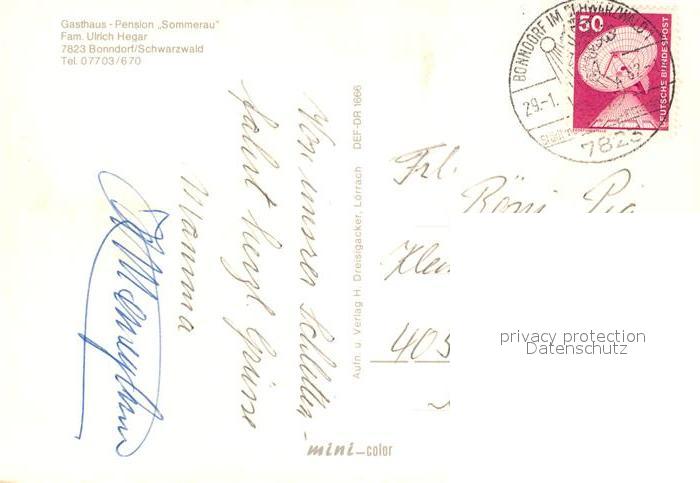 Gasthaus - Pension „Sommerau"
Fam. Ulrich Hegar
7823 Bonndorf/Schwarzwald
Tel. 07703/670
BONNDORF IM SCHWARZWALD
29.-1.
7823
50
DEUTSCHE BUNDESPOST
Von unsrer Schlitten-
fahrt herzl. Grüsse
Mamma
Aufn. u. Verlag H. Dreisigacker, Lörrach DEF-DR 1666
Frl.
Pia
405
privacy protection
Datenschutz
mini-color